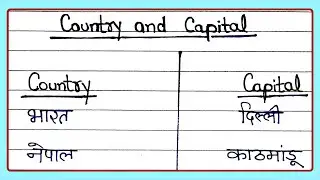 Country and Capital
Country Capital
भारत दिल्ली
नेपाल काठमांडू